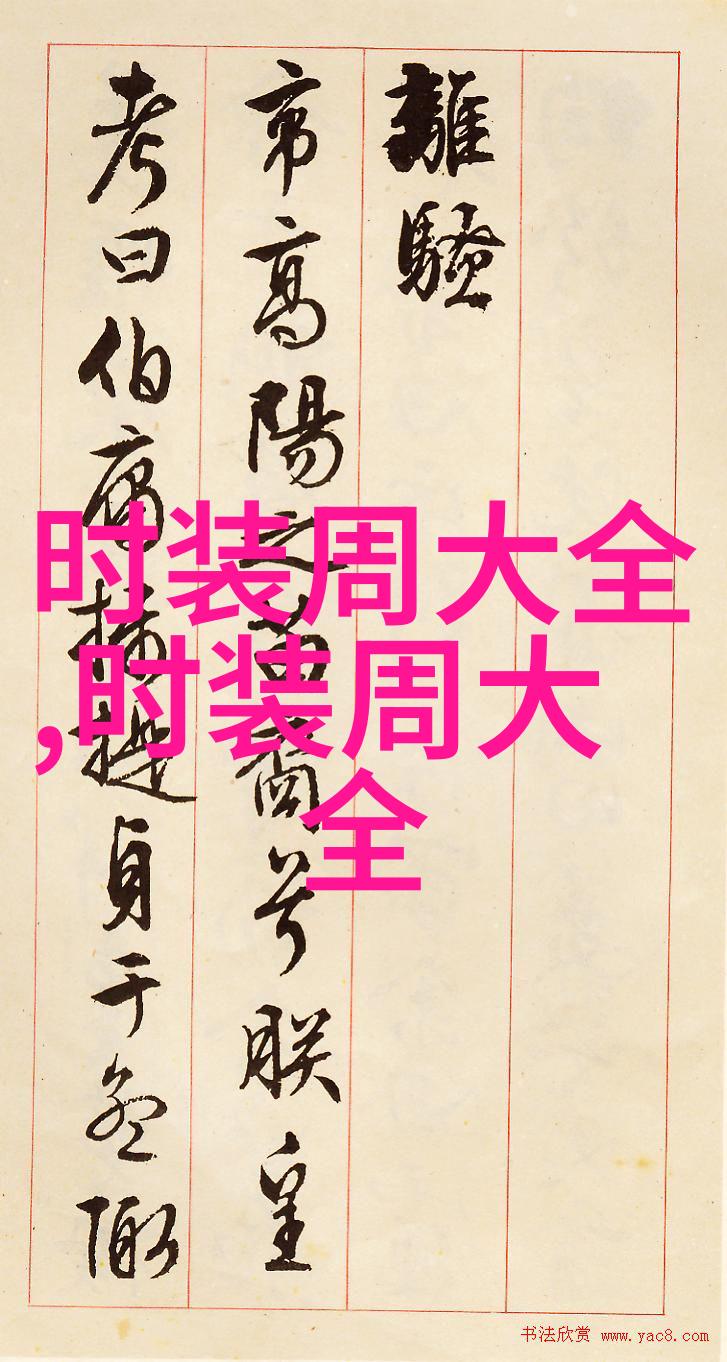 離騷
帝高陽之苗裔兮朕皇
考曰伯庸攝提貞于孟陬
时装周大全
,时装周大
全
书法欣赏 www.yac8.com